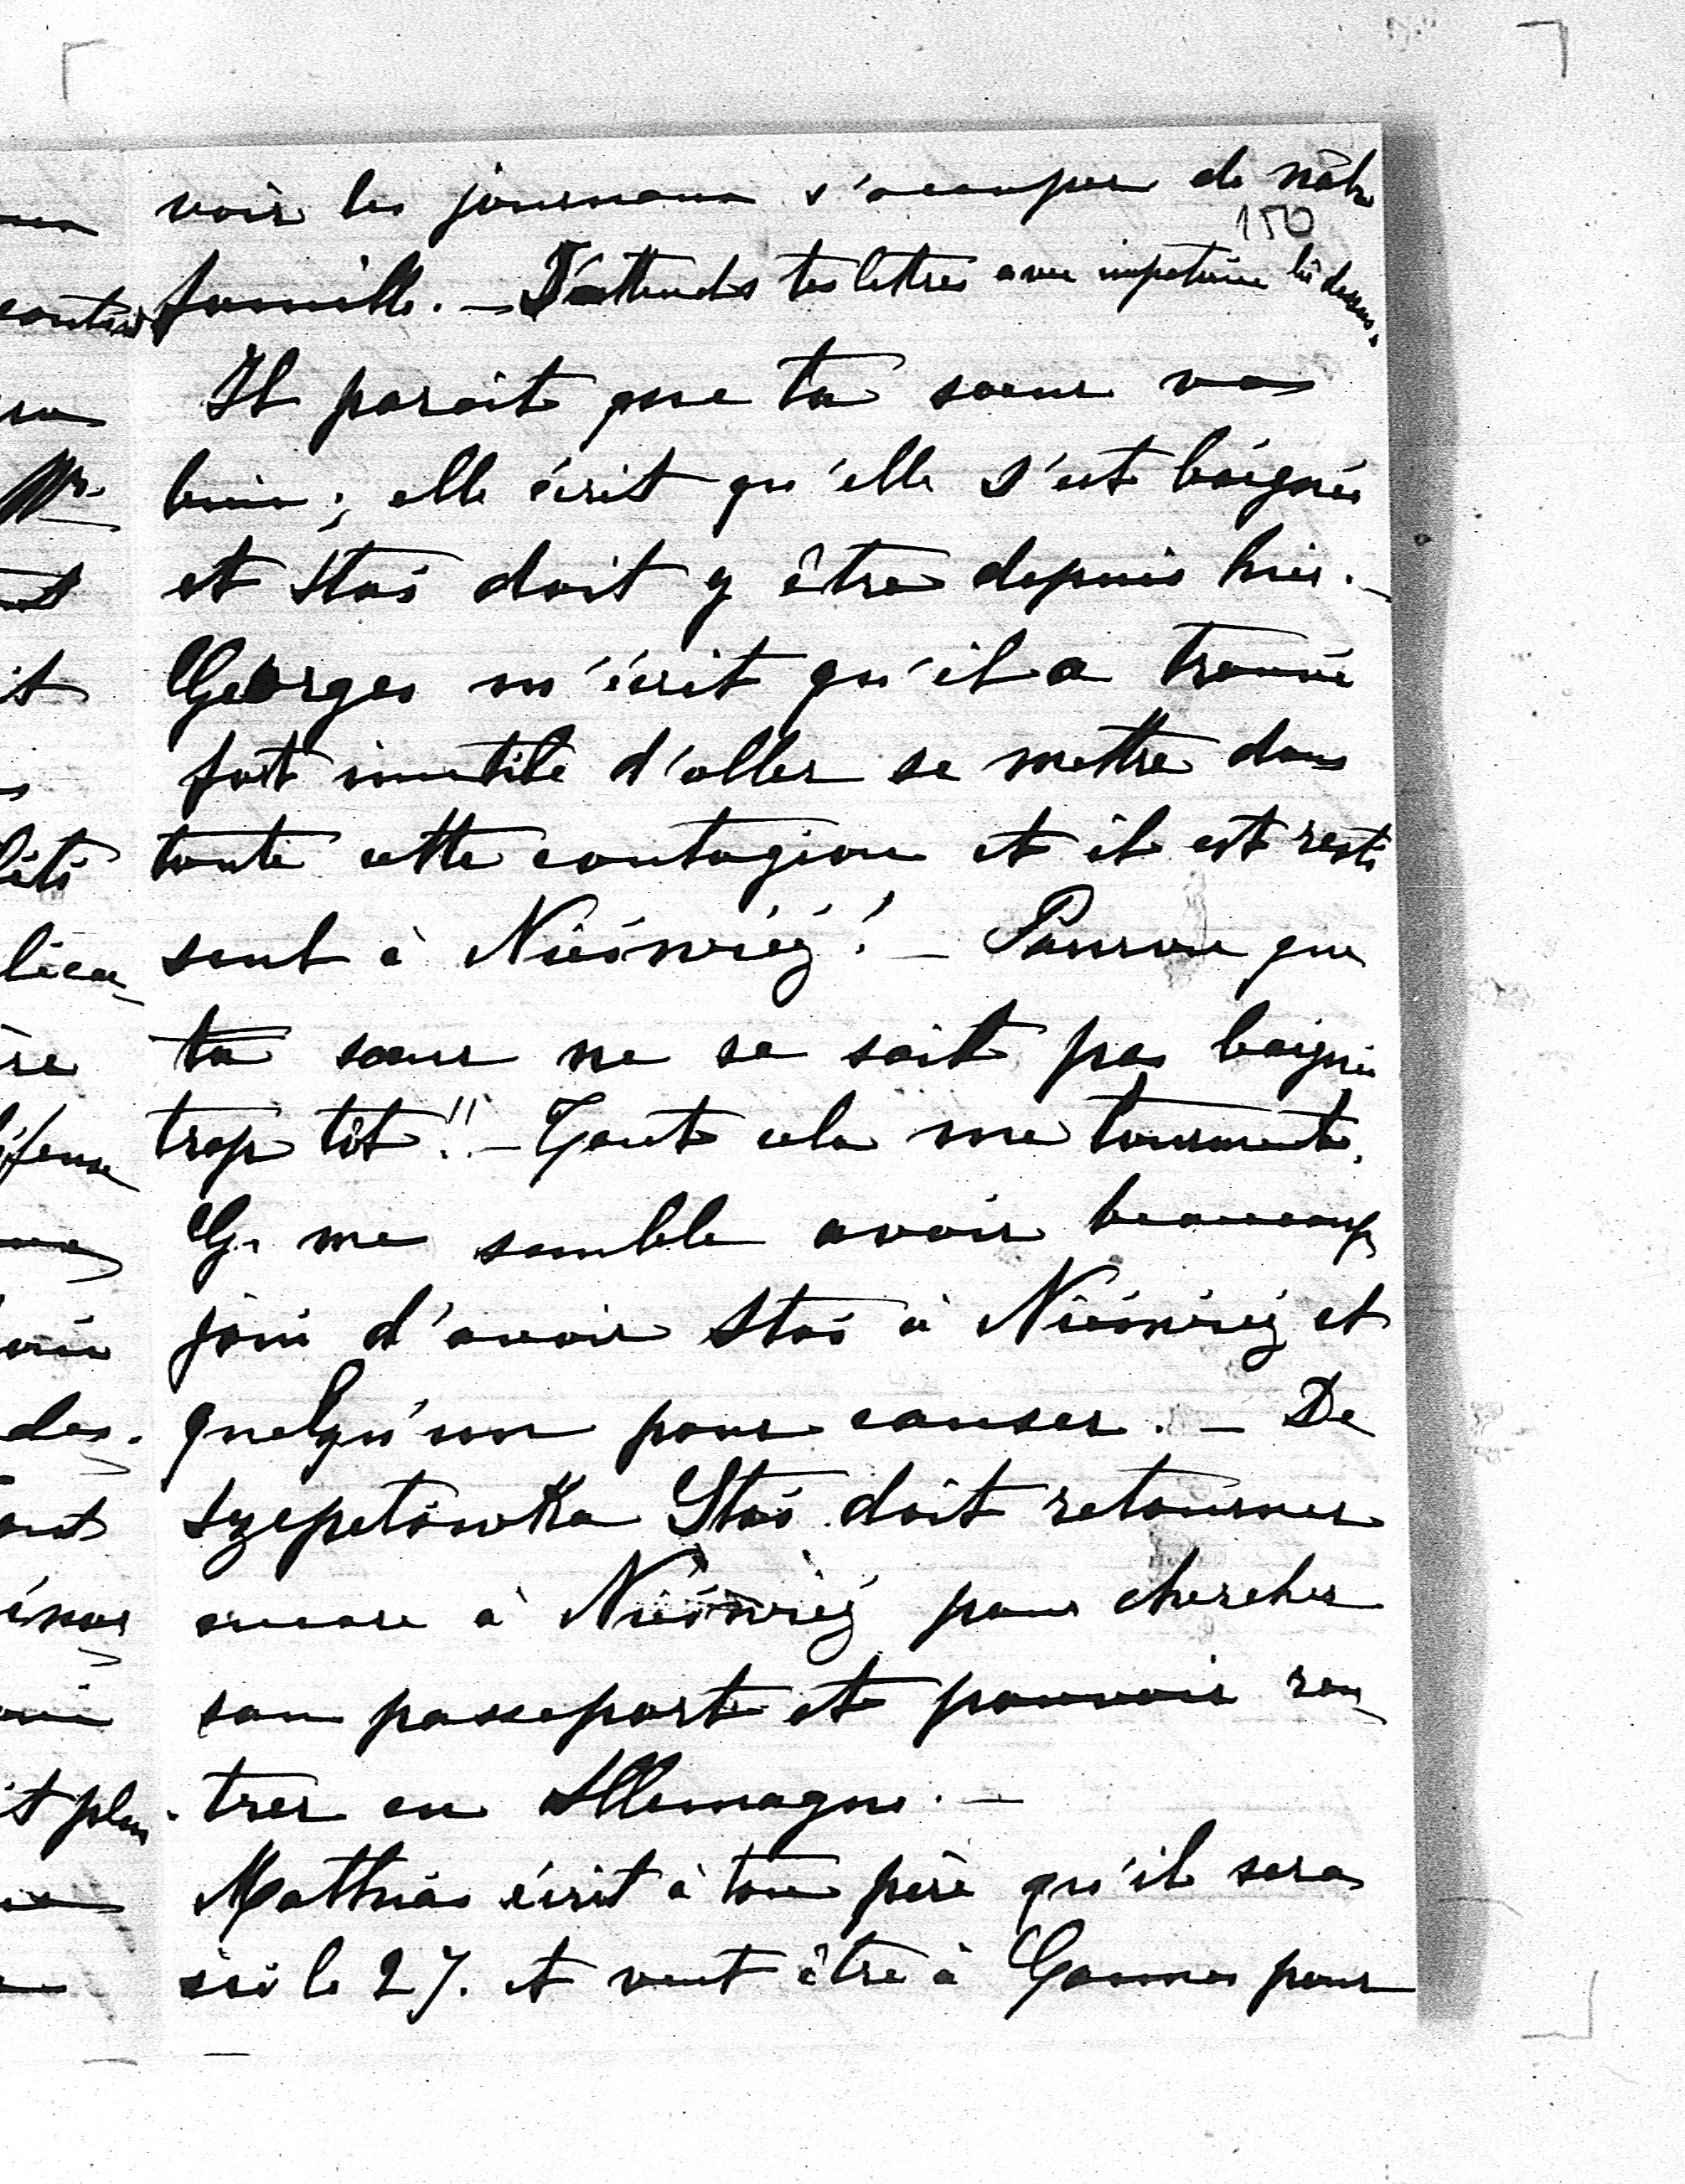 voir les journaux s'occuper de nôtre
150
famille. – J'attends tes lettres avec impatience là dessus.
Il parait que ta soeur va
bien; elle écrit qu'elle s'est baignée
et Staś doit y être depuis hier. –
Georges m'écrit qu'il a trouvé
fort inutile d'aller se mettre dans
toute cette contagion et il est resté
seul à Nieśwież! – Pourvu que
ta soeur ne se soit pas baignée
trop tôt!! – Tout cela me tourmente.
G. me semble avoir beaucoup
joui d'avoir Staś à Nieśwież et
quelqu'un pour causer. – De
Szepetówka Staś doit retourner
encore à Nieśwież pour chercher
son passeport et pouvoir ren
trer en Allemagne. –
Mathias écrit à ton père qu'il sera
ici le 27. et veut être à Cannes pour